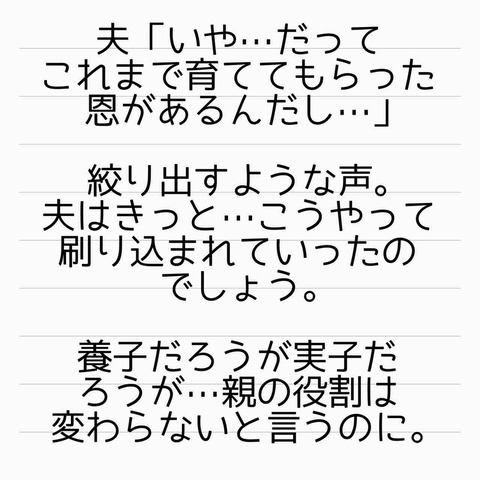 夫「いや…だって
これまで育ててもらった
恩があるんだし…」
絞り出すような声。
夫はきっと…こうやって
刷り込まれていったの
でしょう。
養子だろうが実子だ
ろうが…親の役割は
変わらないと言うのに。